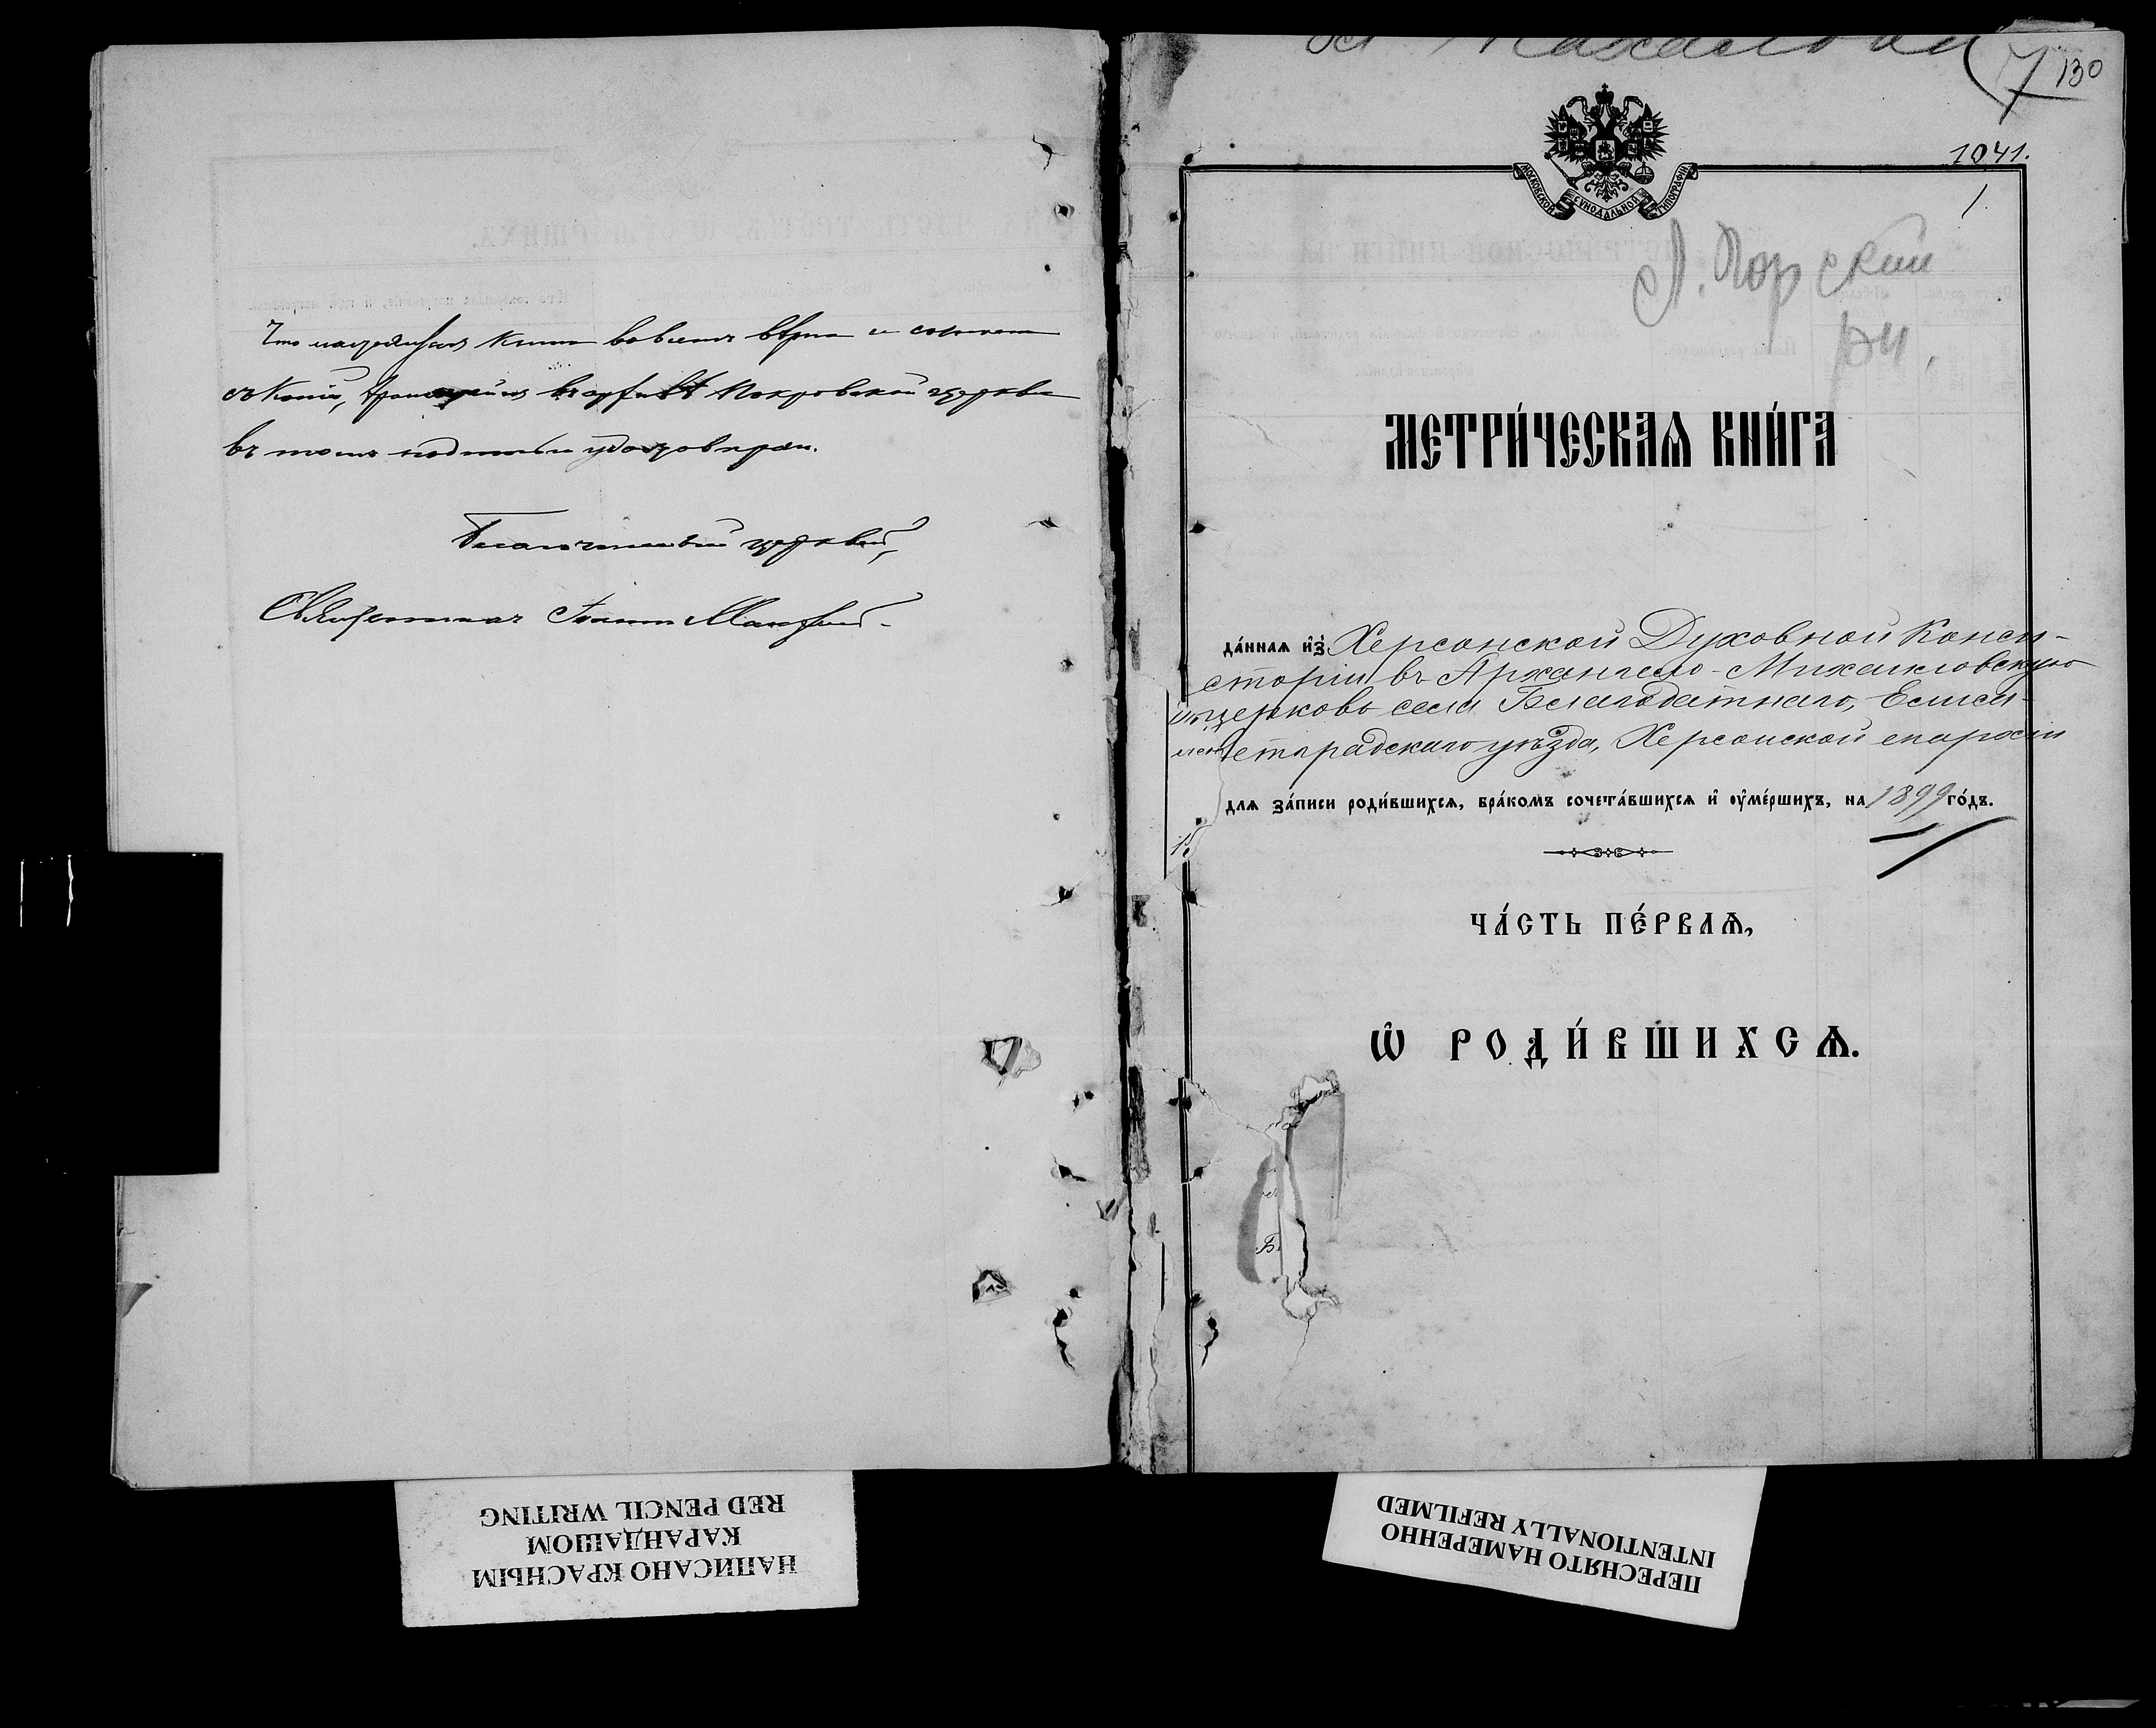 Что настоящая книга во всемъ вѣрна и согласна
съ копіею, хранящейся въ архивѣ Покровской церкви
въ томъ подписью удостовѣряю.
Благочинный церквей,
Священникъ Іоаннъ
130
1041.
1
МОСКОВСКОЙ СѴНОДАЛЬНОЙ ТИПОГРАФІИ
МЕТРИ́ЧЕСКАѦ КНИ́ГА
да́ннаѧ и҆з̾ Херсонской Духовной Конси-
сторіи въ Архангело-Михаиловскую
церковь села Благодатнаго, Елиса-
ветградскаго уѣзда, Херсонской епархіи
длѧ за́писи роди́вшихсѧ, бра́комъ сочета́вшихсѧ и҆ ᲂу҆ме́ршихъ, на 1899 го́дъ.
ЧА́СТЬ ПЕ́РВАѦ,
Ѽ РОДИ́ВШИХСѦ.
НАПИСАНО КРАСНЫМ
КАРАНДАШОМ
RED PENCIL WRITING
ПЕРЕСНЯТО НАМЕРЕННО
INTENTIONALLY REFILMED